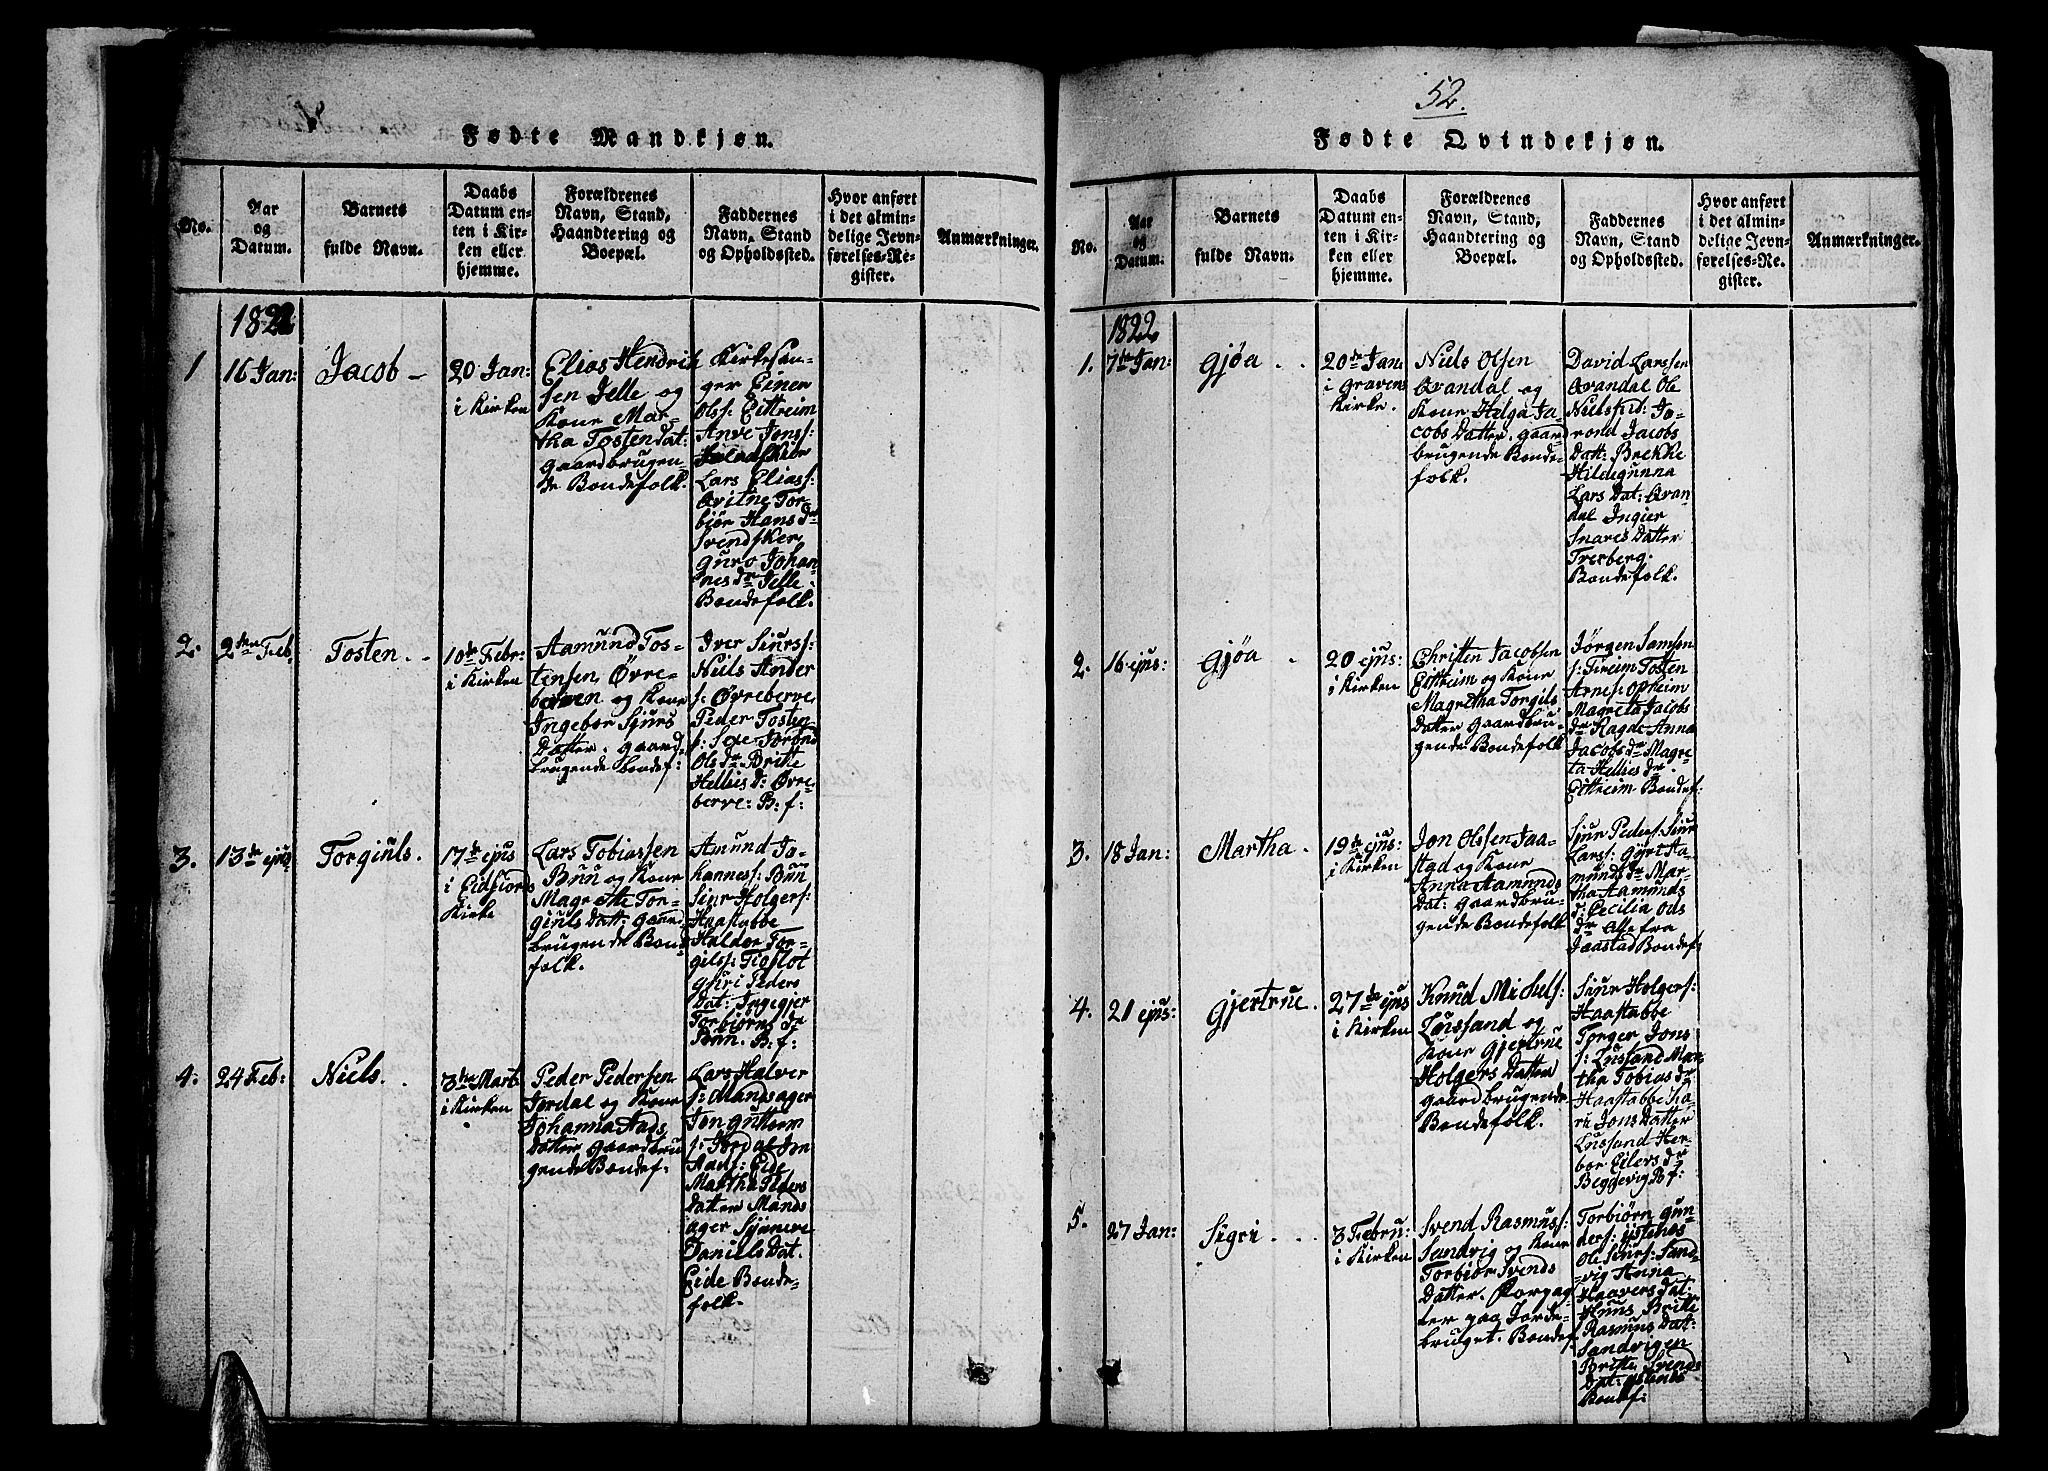 52.
Fødte Mandkjøn.
No.
Aar
og
Datum.
Barnets
fulde Navn.
Daabs
Datum en-
ten i Kir-
ken eller
hjemme.
Forældrenes
Navn, Stand,
Haandtering og
Boepæl.
Faddernes
Navn, Stand
og Opholdssted.
Hvor anført
i det almin-
delige Jevn-
førelses-Re-
gister.
Anmærkninger.
1822
1
16 Jan:
Jacob -
20 Jan:
i Kirken
Elias Hendrik
sen Jelle og
Kone Mar-
tha Tostendat:
gaardbrugen-
de Bondefolk.
Kirkesan-
ger Einer
Olss: Eittreim
Arve Jonss:
Lars Eliass:
Qvitne Tor-
biør Hans dr
Svendsker
guro Johan-
nes dr Jelle
Bondefolk.
2.
2den Feb.
Tosten.
10de Febr:
i Kirken
Aamund Tos-
tensen Øvre-
berven og Kone
Ingebor Sjurs
Datter. gaard-
brugende bondef:
Iver Siurs:
Niels Ander
s: Øvreberve
Peder Tosten
s: Sexe Torbnd
Ols dr Britte
Hellies d: Øvre-
berve: B: f:
3.
13de ejus
Torgiuls.
17de ejus
i Eidfiords
Kirke
Lars Tobiassen
Buu og Kone
Magrethe Tor-
giuls Datt: gaard
brugende Bond
folk.
Amund Jo-
hanness: Buu
Siur Holgers:
Haastabbe
Haldor Tor-
gilss: Tioflot
guri Peders
Dat: Ingegjer
Torbiørns dr
B: f:
4.
24 Feb:
Niels.
3die Marts
i Kirken
Peder Pedersen
Jordal og Kone
Johanna Aads
Datter gaardbru
gende Bondef:
Lars Halver
s: Mandsager
Jon guttorm
s: Jordal Jon
Aads: Eide
Martha Peders
Datter Mands
ager Synneve
Daniels Dat.
Eide Bonde-
folk.
Fødte Qvindekjøn.
No.
Aar
og
Datum.
Barnets
fulde Navn.
Daabs
Datum en-
ten i Kir-
ken eller
hjemme.
Forældrenes
Navn, Stand,
Haandtering og
Boepæl.
Faddernes
Navn, Stand
og Opholdssted.
Hvor anført
i det almin-
delige Jevn-
førelses-Re-
gister.
Anmærkninger.
1822
1.
7de Jan:
Gjøa
20de Jan:
i gravens
Kirke.
Niels Olsen
Qvandal og
Kone Helga Ja
cobs Datter. gaard
brugende Bonde-
folk.
David Larssen
Qvandal Ole
rond Jacobs
Datt: Brekke
Hildegunna
Lars Dat: Qvan-
dal Ingier
Snares Datter
Trerberg.
Bondefolk.
2.
16 ejus:
Gjøa
20 ejus:
i Kirken
Christen Jacobsen
Eittreim og Kone
Magretha Torgils
Datter gaardbru-
gende Bondefolk
Jørgen Samsen
s: Fireim Tosten
Arnes: Opheim
Magreta Jacobs
dr Ragde Anna
Jacobs dr Magre-
ta Hellies dr.
Eittreim Bondef:
3.
18 Jan:
Martha.
19de ejus:
i Kirken
Jon Olssen Jaa-
stad og Kone
Anna Aamunds
Dat: gaardbru-
gende Bondefolk
Sjur Peders: Siur
Larss: Gyri Aa-
munds dr Mar-
tha Aamunds
d: Cecilia Ols
dr alle fra
Jaastad Bondef:
4.
21 ejus:
Gjertrue.
27de ejus
i Kirken
Knud Michels:
Lussand og
Kone Gjertrue
Holgers Datter
gaardbrugende
Bondefolk.
Siur Holgers:
Haastabbe
Torger Jons
s: Lussand Mar-
tha Tobias dr
Haastabbe Ka-
ri Jons Datter
Lussand Her-
bor Eilers dr
Beggevig B: f:
5.
27 Jan:
Sigri
3 Febru:
i Kirken
Svend Rasmus:
Sandvig og Kone
Torbiør Svends
Datter. Forpag-
ter paa Jorde-
bruget. Bondef:
Torbiørn gun-
ders: ystenes
Ole Siurs: Sand-
vig Anna
Haavers Dat:
Huus Britte
Rasmus Datt:
Sandvigen
Britte Svends
Dat: ystenes
Bondef: